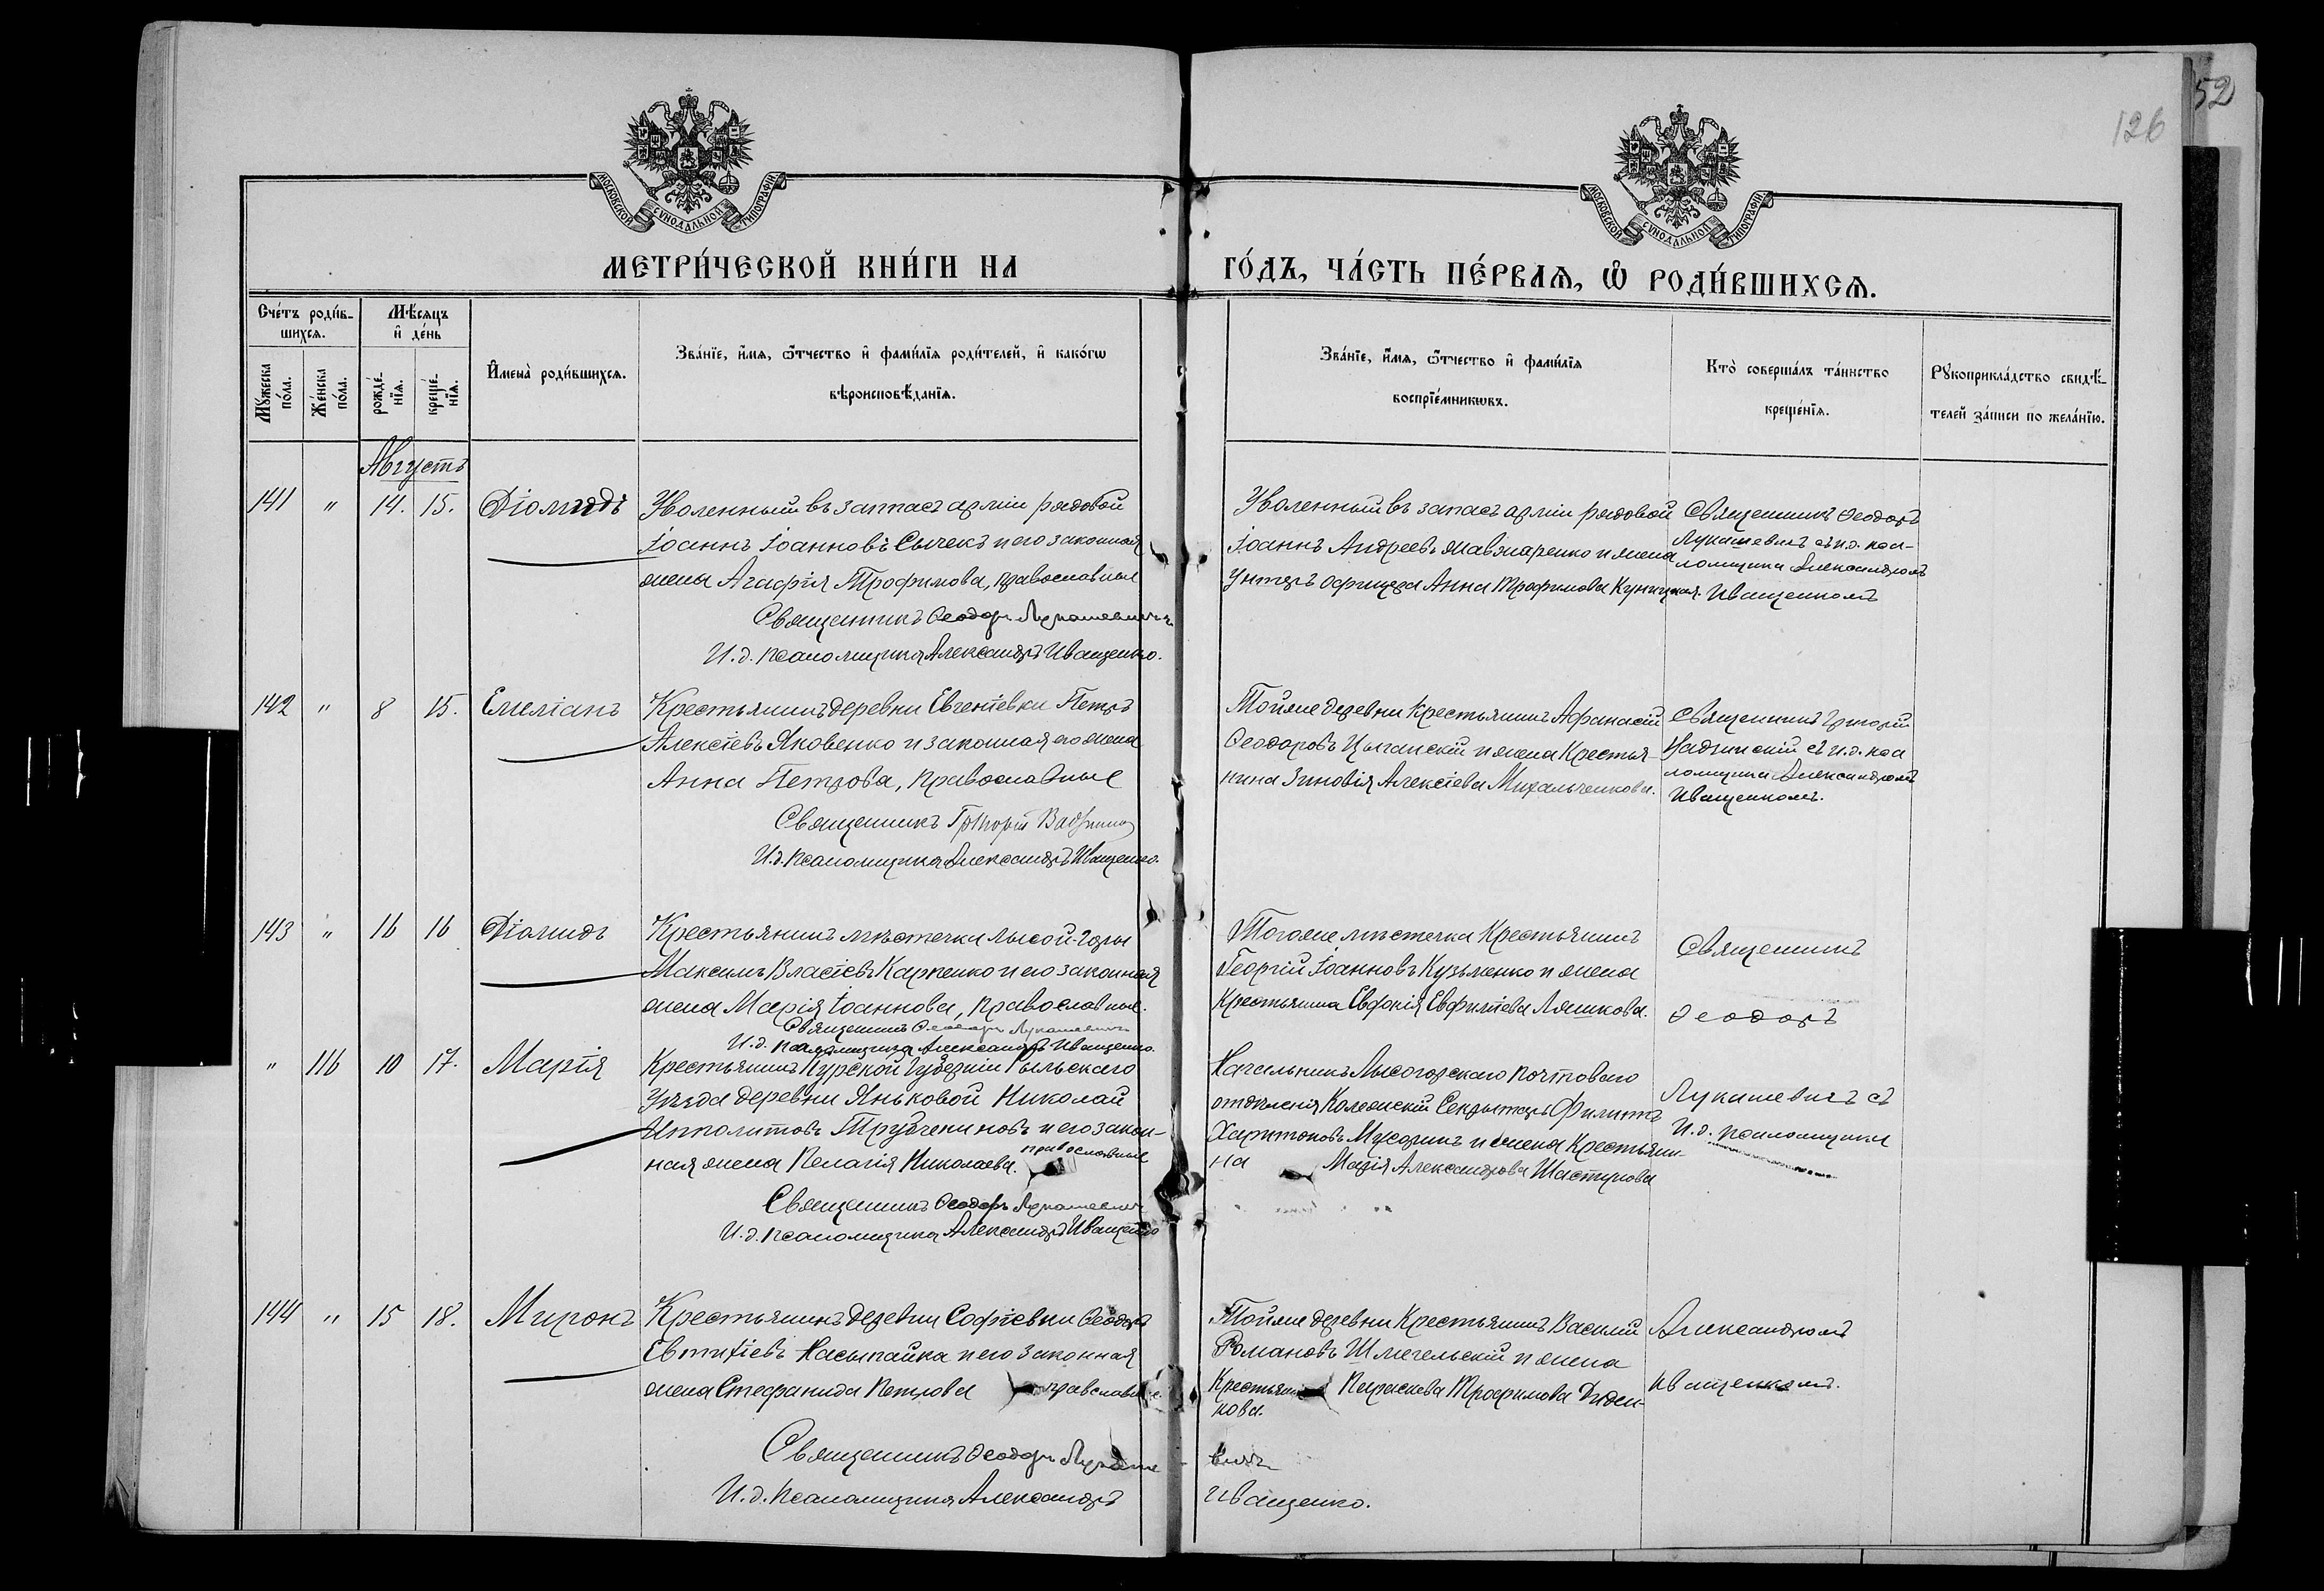 52
126
МОСКОВСКОЙ СѴНОДАЛЬНОЙ ТИПОГРАФІИ.
МОСКОВСКОЙ СѴНОДАЛЬНОЙ ТИПОГРАФІИ.
МЕТРИ́ЧЕСКОЙ КНИ́ГИ НА
ГО́ДЪ, ЧА́СТЬ ПЕ́РВАѦ, Ѡ҆ РОДИ́ВШИХСѦ.
Сче́тъ роди́в-
шихсѧ.
Мѣ́сѧцъ
и҆ де́нь
Мꙋ́жеска
по́ла.
Же́нска
по́ла.
рожде́-
нїѧ.
креще́-
нїѧ.
И҆мена̀ роди́вшихсѧ.
Зва́нїе, и҆́мѧ, ѻ҆́тчество и҆ фами́лїѧ роди́телей, и҆ како́гѡ
вѣроисповѣ́данїѧ.
Зва́нїе, и҆́мѧ, ѻ҆́тчество и҆ фами́лїѧ
воспрїе́мникѡвъ.
Кто̀ соверша́лъ та́инство
креще́нїѧ.
Рꙋкоприкла́дство свидѣ́-
телей за́писи по жела́нїю.
Августъ
141 " 14. 15. Діомидъ
Уволенный въ запасъ арміи рядовой
Іоаннъ Іоанновъ Сычекъ и его законная
жена Агафія Трофимова, православные
Священникъ Ѳеодоръ Лукашевичъ.
И.д. псаломщика Александръ Иващенко.
Уволенный въ запасъ арміи рядовой
Іоаннъ Андреевъ и жена
Унтеръ офицера Анна Трофимова Куницкая.
Священникъ Ѳеодоръ
Лукашевичъ съ и.д. пса-
ломщика Александромъ
Иващенкомъ
142 " 8 15. Емиліанъ
Крестьянинъ деревни Евгеніевки Петръ
Алексіевъ Яковенко и законная его жена
Анна Петрова, православные
Священникъ Григорій
И.д. псаломщика Александръ Иващенко.
Той же деревни крестьянинъ Афанасій
Ѳеодоровъ Цыганскій и жена крестья-
нина Зиновія Алексіева Михальченкова.
Священникъ Григорій
съ и.д. пса
ломщика Александромъ
Иващенкомъ.
143 " 16 16 Діомидъ
Крестьянинъ мѣстечка Лысой-Горы
Максимъ Власіевъ Карпенко и его законная
жена Марія Іоаннова, православные.
Священникъ Ѳеодоръ Лукашевичъ
И.д. псаломщика Александръ Иващенко.
Того же мѣстечка крестьянинъ
Георгій Іоанновъ Кузьменко и жена
крестьянина Евфонія Евфиміева Ляшкова.
Священникъ
Ѳеодоръ
" 116 10 17. Марія
Крестьянинъ Курской губерніи Рыльскаго
уѣзда деревни Яньковой Николай
Ипполитовъ Трубчениновъ и его закон-
ная жена Пелагія Николаева. православные
Священникъ Ѳеодоръ Лукашевичъ
И.д. псаломщика Александръ Иващенко
Начальникъ Лысогорскаго почтоваго
отдѣленія Коллежскій Секретарь Филиппъ
Харитоновъ и жена крестьяни-
на Марія Александрова Шастунова
Лукашевичъ съ
И.д. псаломщика
144 " 15 18. Миронъ
Крестьянинъ деревни Софіевки Ѳеодоръ
Евтихіевъ Насыпайка и его законная
жена Стефанида Петрова православные.
Священникъ Ѳеодоръ Лукаше
вичъ
И.д. псаломщика Александръ
Иващенко.
Той же деревни крестьянинъ Василій
Романовъ Шмегельскій и жена
крестьянина Параскева Трофимова Диден-
кова.
Александромъ
Иващенкомъ.